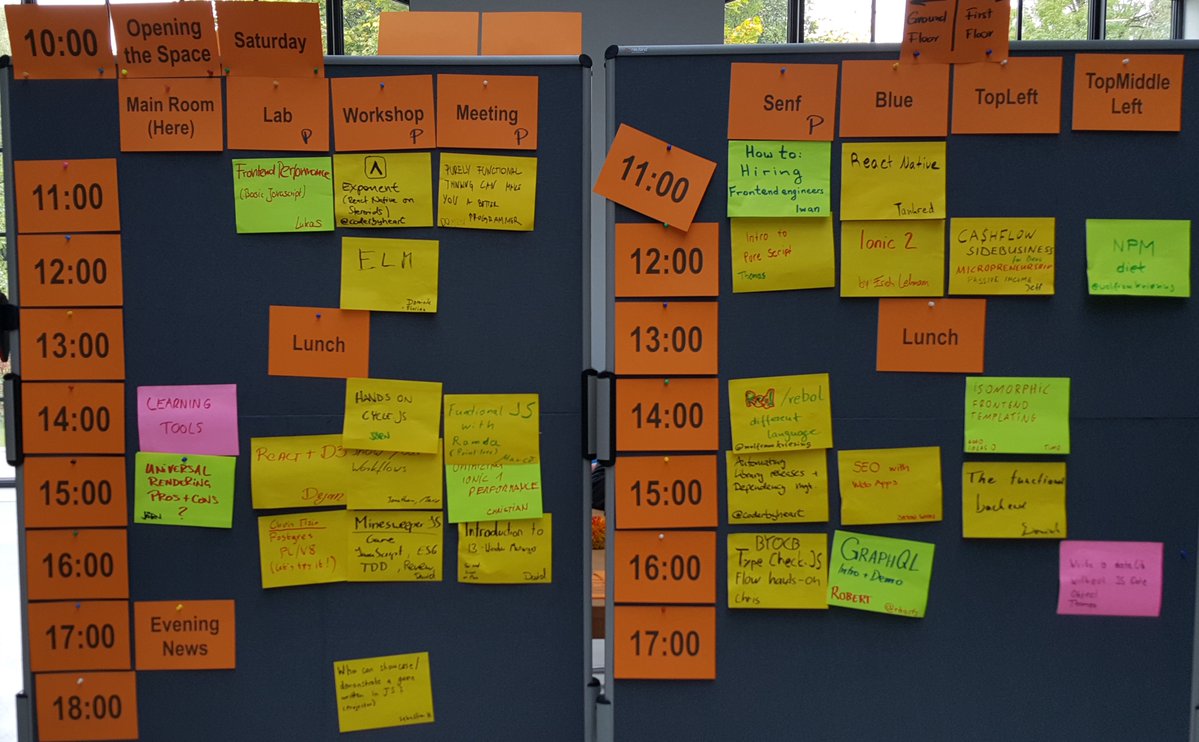 10:00
Opening
the Space
Saturday
Main Room
(Here)
Lab
P
Workshop
P
Meeting
P
11:00
Frontend Performance
(Basic Javascript)
Lukas
Exponent
(React Native on
Steroids)
@coderbyheart
PURELY FUNCTIONAL
THINKING CAN MAKE
YOU A BETTER
PROGRAMMER
12:00
ELM
Dominik
13:00
Lunch
14:00
LEARNING
TOOLS
HANDS ON
CYCLE.JS
JÖRN
Functional JS
with
Ramda
(Point free)
Marco
15:00
UNIVERSAL
RENDERING
PROS + CONS
?
JÖRN
REACT + D3
Dejan
Workflows
Jonathan,
IONIC 1
PERFORMANCE
CHRISTIAN
16:00
Postgres
PL/V8
(let's try it!)
Minesweeper JS
Game
JavaScript, ES6
TDD, Review
David
Introduction to
David
17:00
Evening
News
18:00
Who can showcase/
demonstrate a game
written in JS?
(Projector)
Sebastian
Ground
Floor
First
Floor
Senf
P
Blue
TopLeft
TopMiddle
Left
11:00
How to:
Hiring
Frontend engineers
Iwan
React Native
Tankred
12:00
Intro to
Pure Script
Thomas
Ionic 2
by Erich Lehmann
CA$HFLOW
SIDEBUSINESS
for Devs
MICROPRENEURSHIP
PASSIVE INCOME
Jeff
NPM
diet
@wolframkriesing
13:00
Lunch
14:00
Red/rebol
different
language
@wolframkriesing
ISOMORPHIC
FRONTEND
TEMPLATING
TIMO
15:00
Automating
Library releases +
Dependency mgt.
@coderbyheart
SEO with
Web Apps
The functional
backend
16:00
BYOCB
Type Check.JS
Flow hands-on
Chris
GRAPHQL
Intro + Demo
ROBERT
Write a mate lib
without JS Core
Object
Thomas
17:00